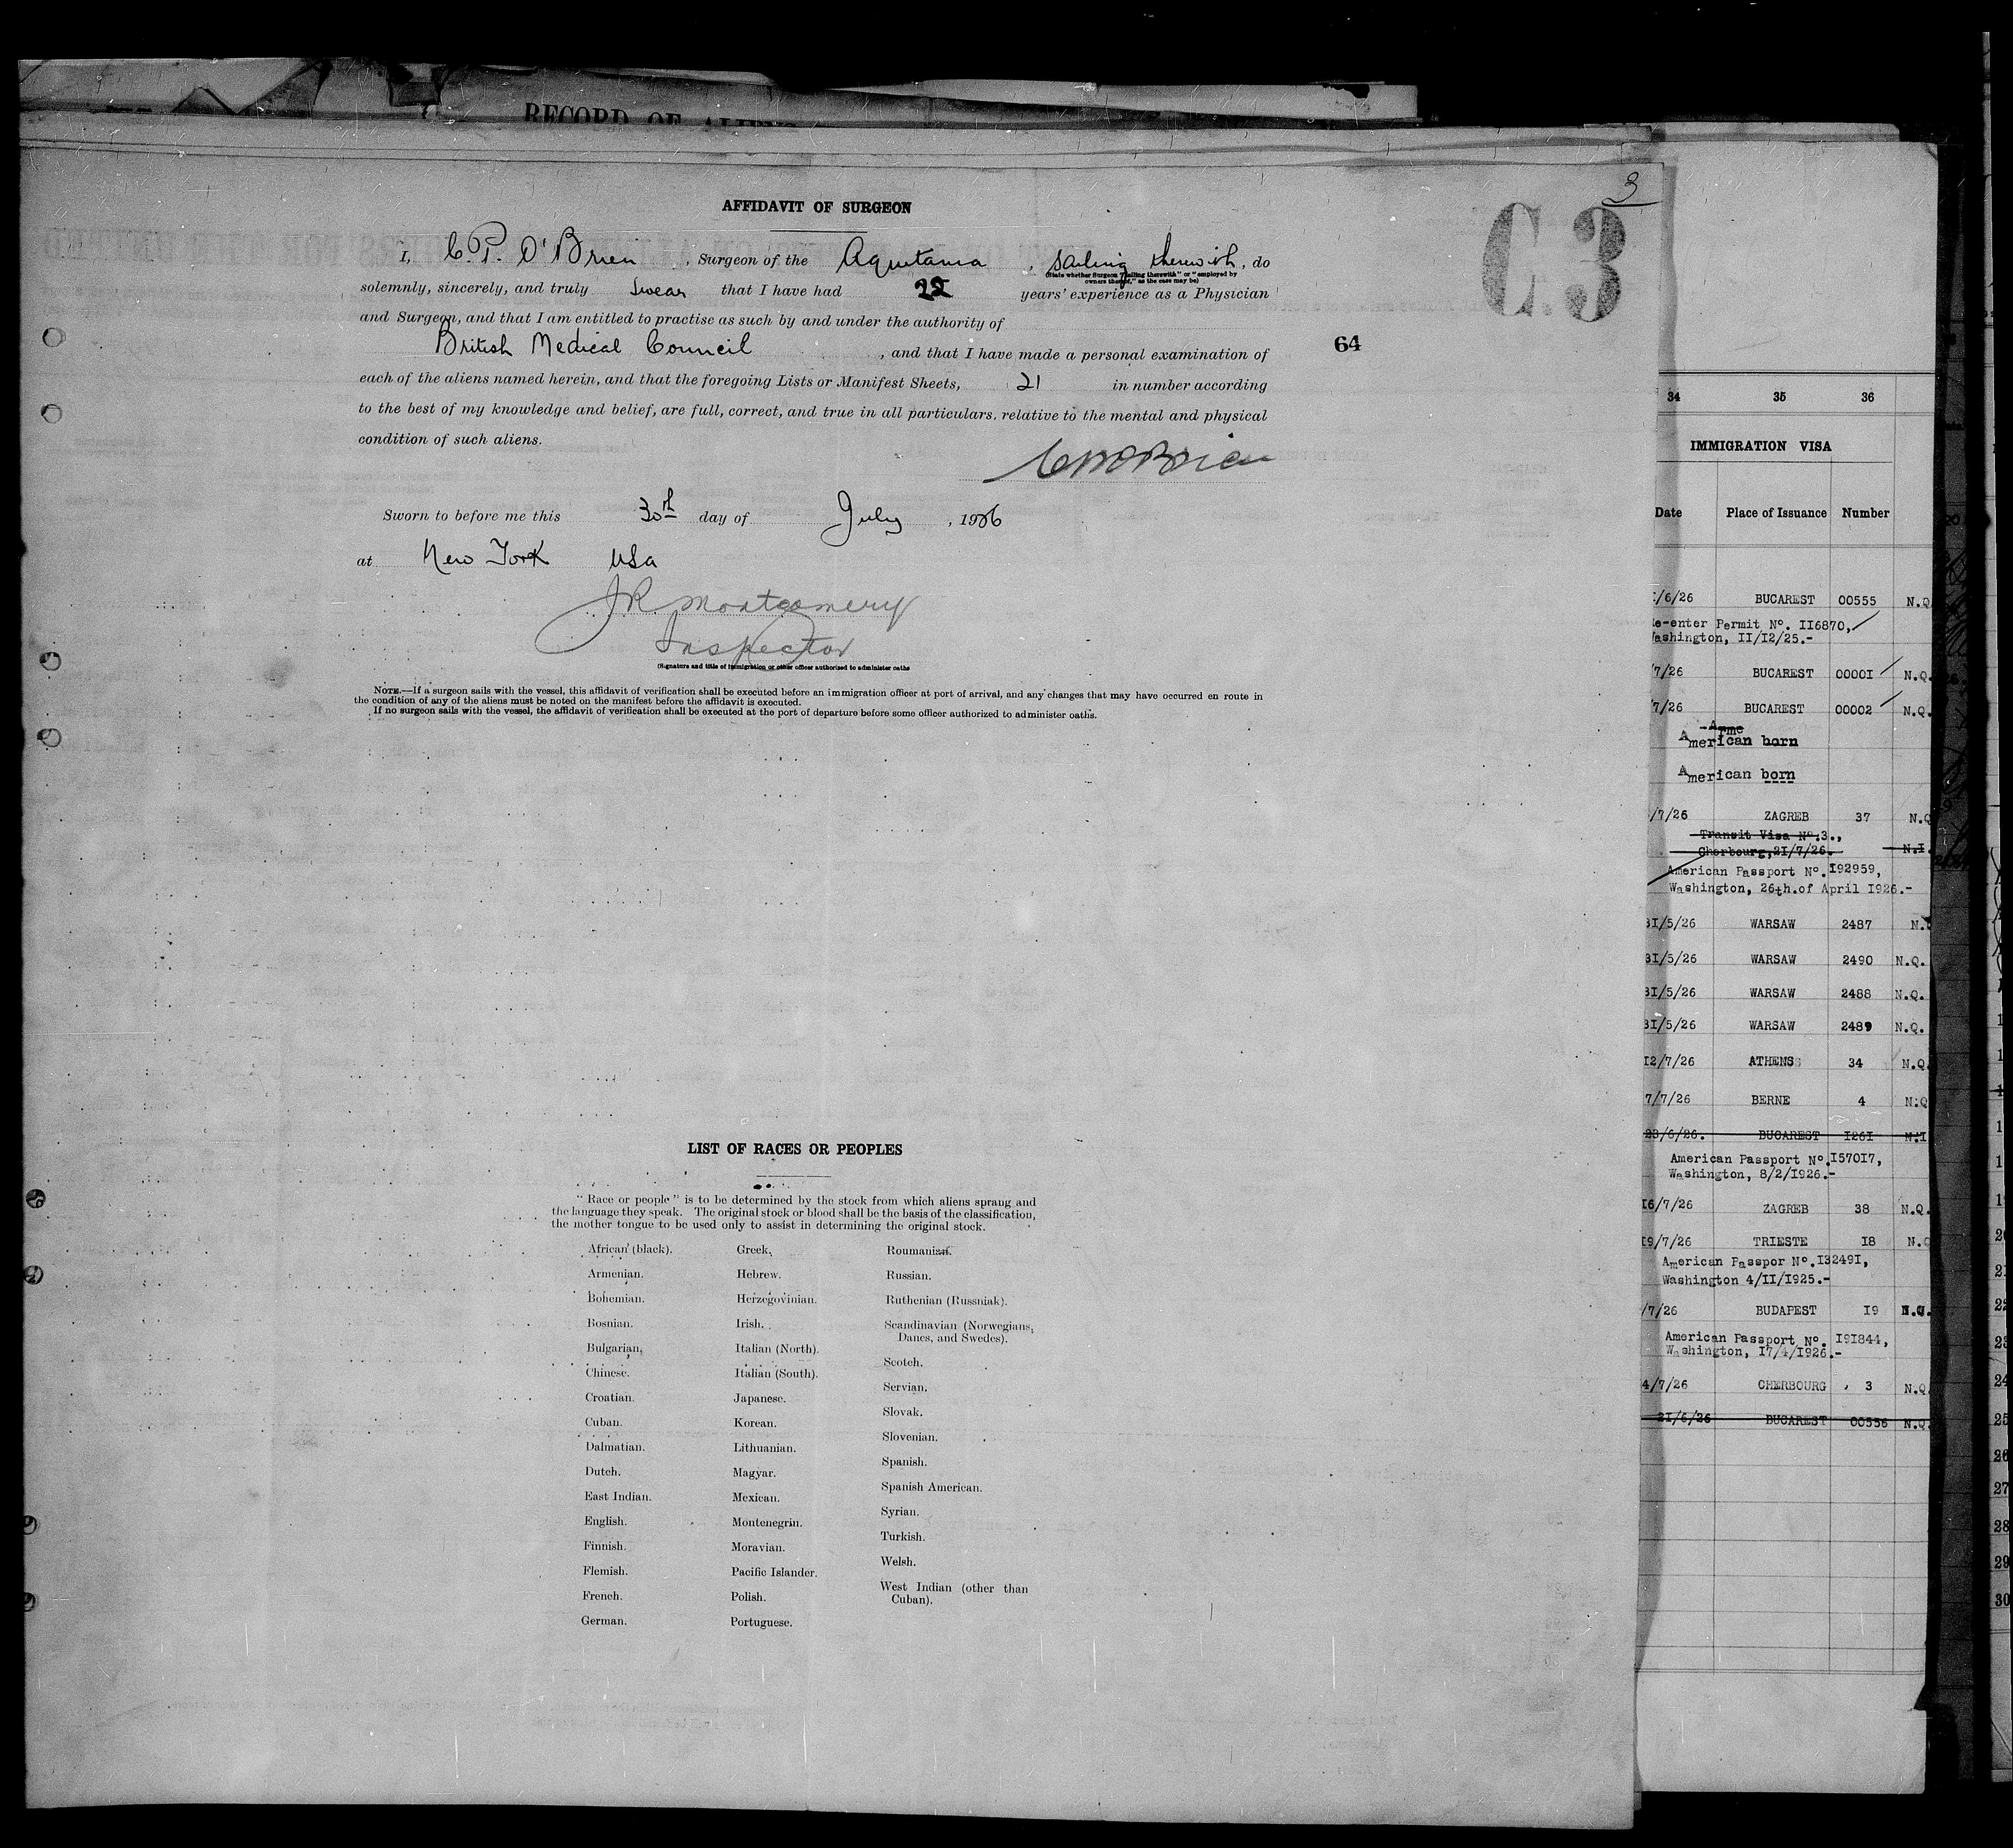 RECORD OF ALIENS
3
C.3
AFFIDAVIT OF SURGEON
I, C.P. O'Brien, Surgeon of the Aquitania, sailing therewith, do
(State whether Surgeon "sailing therewith" or "employed by
owners thereof," as the case may be)
solemnly, sincerely, and truly swear that I have had 22 years' experience as a Physician
and Surgeon, and that I am entitled to practise as such by and under the authority of
British Medical Council, and that I have made a personal examination of
64
each of the aliens named herein, and that the foregoing Lists or Manifest Sheets, 21 in number according
to the best of my knowledge and belief, are full, correct, and true in all particulars, relative to the mental and physical
condition of such aliens.
Sworn to before me this 30th day of July, 1926
at New York USA
JR Montgomery
Inspector
(Signature and title of immigration or other officer authorized to administer oaths
NOTE.—If a surgeon sails with the vessel, this affidavit of verification shall be executed before an immigration officer at port of arrival, and any changes that may have occurred en route in
the condition of any of the aliens must be noted on the manifest before the affidavit is executed.
If no surgeon sails with the vessel, the affidavit of verification shall be executed at the port of departure before some officer authorized to administer oaths.
LIST OF RACES OR PEOPLES
"Race or people" is to be determined by the stock from which aliens sprang and
the language they speak. The original stock or blood shall be the basis of the classification,
the mother tongue to be used only to assist in determining the original stock.
African (black).
Armenian.
Bohemian.
Bosnian.
Bulgarian.
Chinese.
Croatian.
Cuban.
Dalmatian.
Dutch.
East Indian.
English.
Finnish.
Flemish.
French.
German.
Greek.
Hebrew.
Herzegovinian.
Irish.
Italian (North).
Italian (South).
Japanese.
Korean.
Lithuanian.
Magyar.
Mexican.
Montenegrin.
Moravian.
Pacific Islander.
Polish.
Portuguese.
Roumanian.
Russian.
Ruthenian (Russniak).
Scandinavian (Norwegians,
Danes, and Swedes).
Scotch.
Servian.
Slovak.
Slovenian.
Spanish.
Spanish American.
Syrian.
Turkish.
Welsh.
West Indian (other than
Cuban).
34 35 36
IMMIGRATION VISA
Date Place of Issuance Number
/6/26 BUCAREST 00555 N.Q
e-enter Permit No. II6870,
ashington, II/I2/25.-
/7/26 BUCAREST 0000I N.Q.
7/26 BUCAREST 00002 N.Q.
American born
American born
/7/26 ZAGREB 37 N.Q
Transit Visa No.3.,
Cherbourg,2I/7/26. N.I.
American Passport No. I92959,
Washington, 26th.of April I926.-
3I/5/26 WARSAW 2487 N.
3I/5/26 WARSAW 2490 N.Q.
3I/5/26 WARSAW 2488 N.Q.
3I/5/26 WARSAW 2489 N.Q.
I2/7/26 ATHENS 34 N.Q.
7/7/26 BERNE 4 N.Q
23/6/26. BUCAREST I26I N.I
American Passport No.I570I7,
Washington, 8/2/I926.-
I6/7/26 ZAGREB 38 N.Q.
I9/7/26 TRIESTE I8 N.Q
American Passpor No.I3249I,
Washington 4/II/I925.-
/7/26 BUDAPEST I9
American Passport No. I9I844,
Washington, I7/4/I926.-
4/7/26 CHERBOURG 3 N.Q.
2I/6/26 BUCAREST 00556 N.Q.
20
21
22
23
24
25
26
27
28
29
30